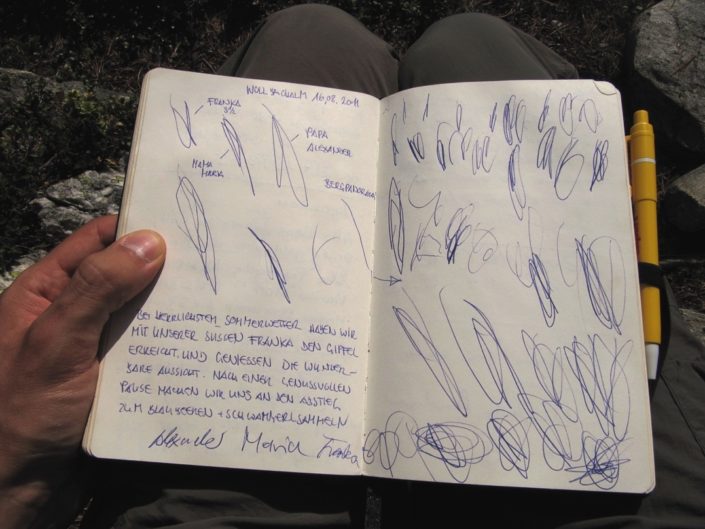 WOLLBACHALM 16,08. 2011
FRANKA
3½
PAPA
ALEXANDER
MAMA
MARIA
BERGPANORAMA
BEI HERRLICHSTEM SOMMERWETTER HABEN WIR
MIT UNSERER SÜSSEN FRANKA DEN GIPFEL
ERREICHT UND GENIESSEN DIE WUNDER-
BARE AUSSICHT. NACH EINER GENUSSVOLLEN
PAUSE MACHEN WIR UNS AN DEN ABSTIEG
ZUM BLAUBEEREN + SCHWAMMERLSAMMELN
Alexander Maria Franka